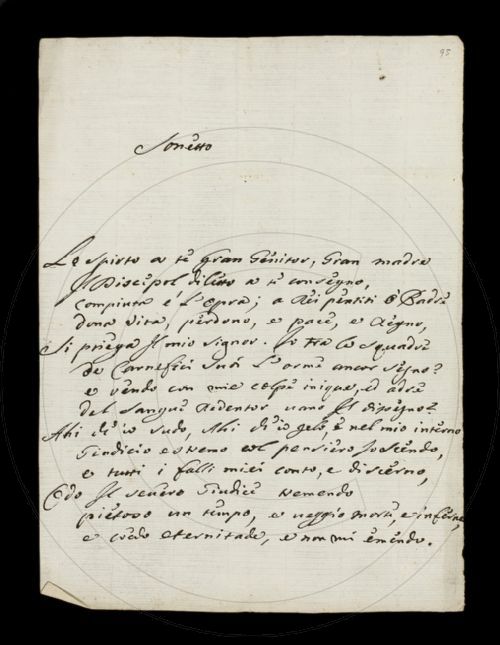 93
Sonetto
Lo spirto a te gran Genitor, Gran madre
Il Discepol diletto a te consegno,
compiuta è l'opra; a Rei pentiti ò Padre
dona vita, perdono, e pace, e Regno,
Si priega Il mio signor. Io tra le squadre
de Carnefici suoi l'orme ancor segno?
e rendo con mie colpe inique, ed adre
del sangue Redentor vano Il disegno?
Ahi ch'io sudo, Ahi ch'io gelo, e nel mio interno
Giudicio estremo col pensiero Io scendo,
e tutti i falli miei conto, e discerno,
Odo Il severo Giudice tremendo
pietoso un tempo, e veggio morte, e inferno,
e credo eternitade, e non mi emendo.